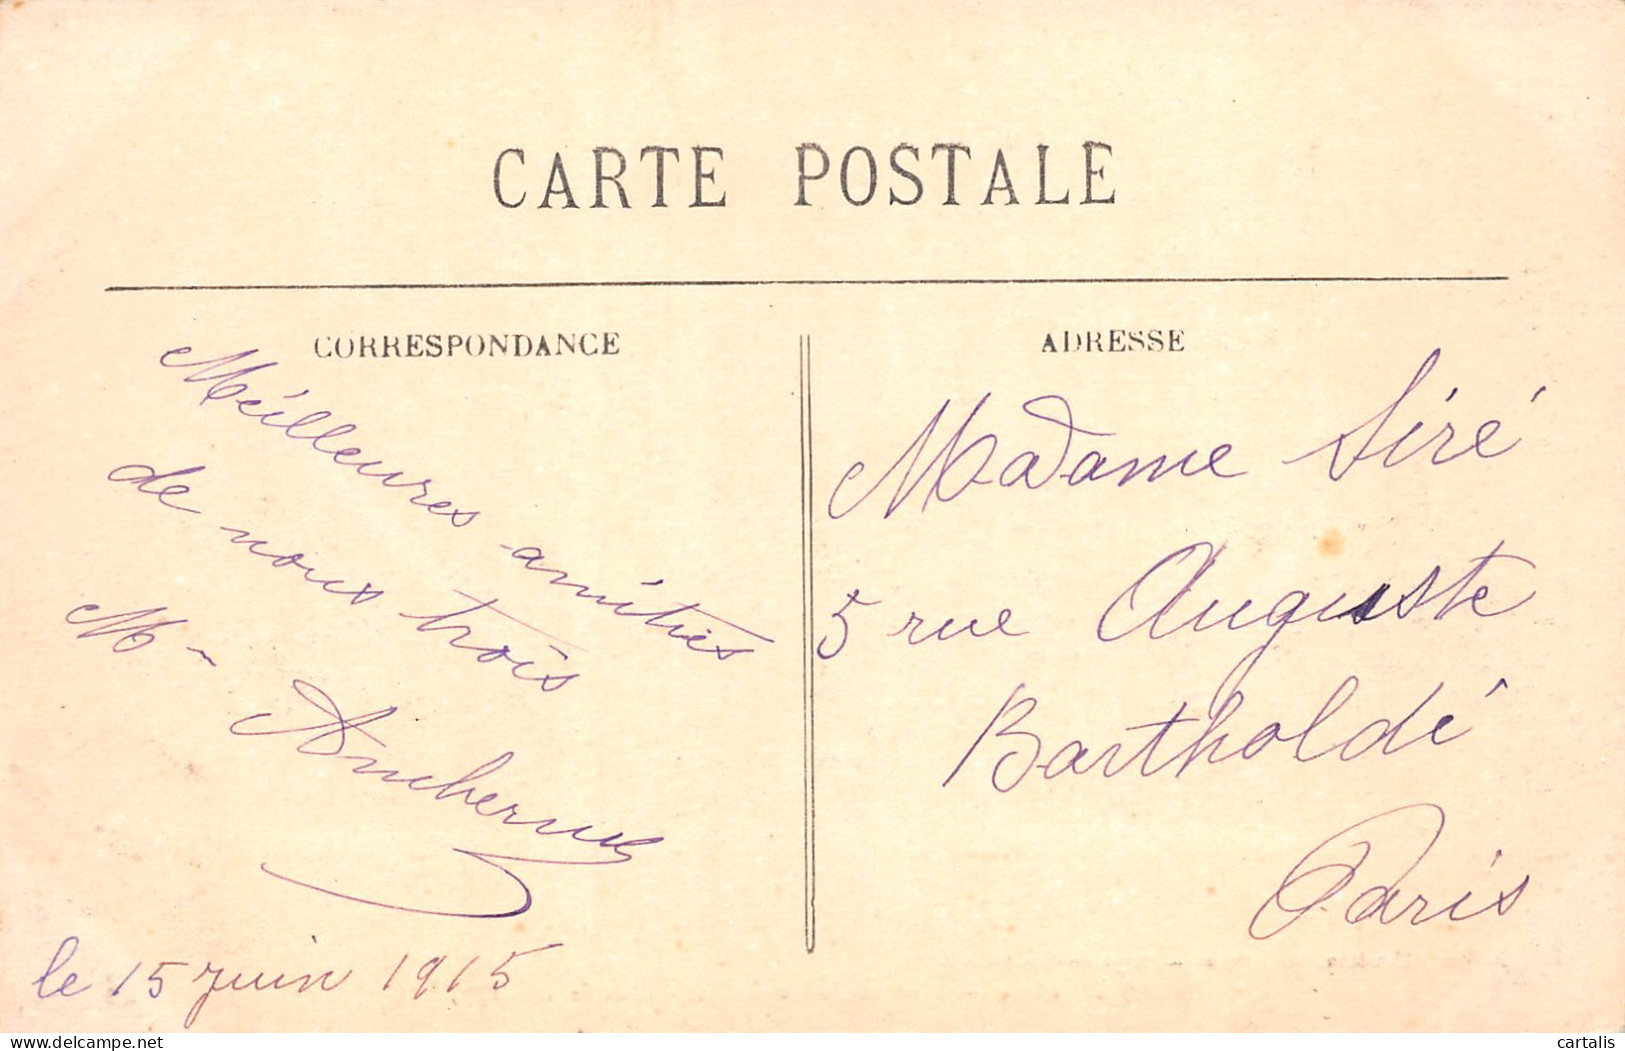 CARTE POSTALE
CORRESPONDANCE
Meilleures amitiés
de nous trois
M
le 15 juin 1915
ADRESSE
Madame Siré
5 rue Auguste
Bartholdi
Paris
delcampe.net
cartalis